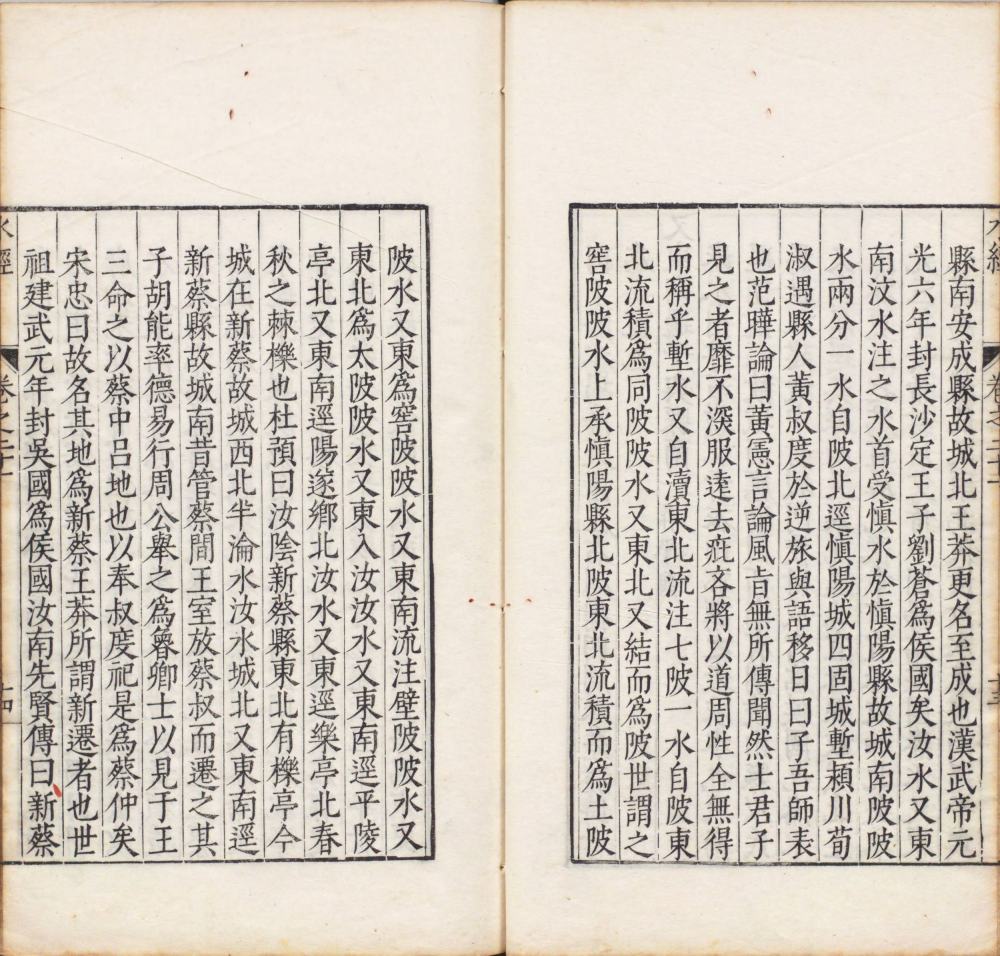 縣南安成縣故城北王莽更名至成也漢武帝元
光六年封長沙定王子劉蒼爲侯國矣汝水又東
南汶水注之水首受慎水於慎陽縣故城南陂陂
水兩分一水自陂北逕慎陽城四固城塹潁川荀
淑遇縣人黃叔度於逆旅與語移日曰子吾師表
也范曄論曰黃憲言論風旨無所傳聞然士君子
見之者靡不深服遠去疵吝將以道周性全無得
而稱乎塹水又自瀆東北流注七陂一水自陂東
北流積爲同陂陂水又東北又結而爲陂世謂之
窖陂陂水上承慎陽縣北陂東北流積而爲土陂
陂水又東爲窖陂陂水又東南流注壁陂陂水又
東北爲太陂陂水又東入汝汝水又東南逕平陵
亭北又東南逕陽遂鄉北汝水又東逕樂亭北春
秋之棘櫟也杜預曰汝陰新蔡縣東北有櫟亭今
城在新蔡故城西北半淪水汝水城北又東南逕
新蔡縣故城南昔管蔡間王室放蔡叔而遷之其
子胡能率德易行周公舉之爲魯卿士以見于王
三命之以蔡中呂地也以奉叔度祀是爲蔡仲矣
宋忠曰故名其地爲新蔡王莽所謂新遷者也世
祖建武元年封吳國爲侯國汝南先賢傳曰新蔡
水經
卷之二十一
十四